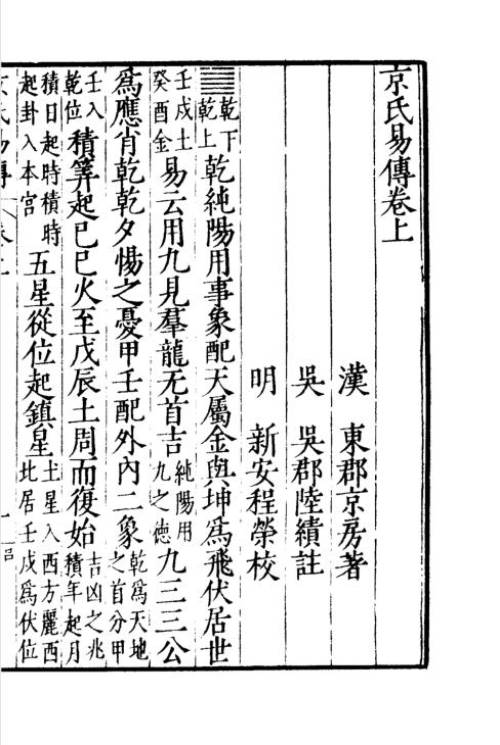 京氏易傳卷上
漢 東郡京房著
吳 吳郡陸績註
明 新安程榮校
䷀乾下乾上乾純陽用事象配天屬金與坤爲飛伏居世
壬戌土癸酉金易云用九見羣龍无首吉純陽用九之德九三三公
爲應肖乾乾夕惕之憂甲壬配外内二象乾爲天地之首分甲
壬入乾位積筭起己巳火至戊辰土周而復始吉凶之兆積年起月
積日起時積時起卦入本宮五星從位起鎮星土星入西方麗西北居壬戌爲伏位